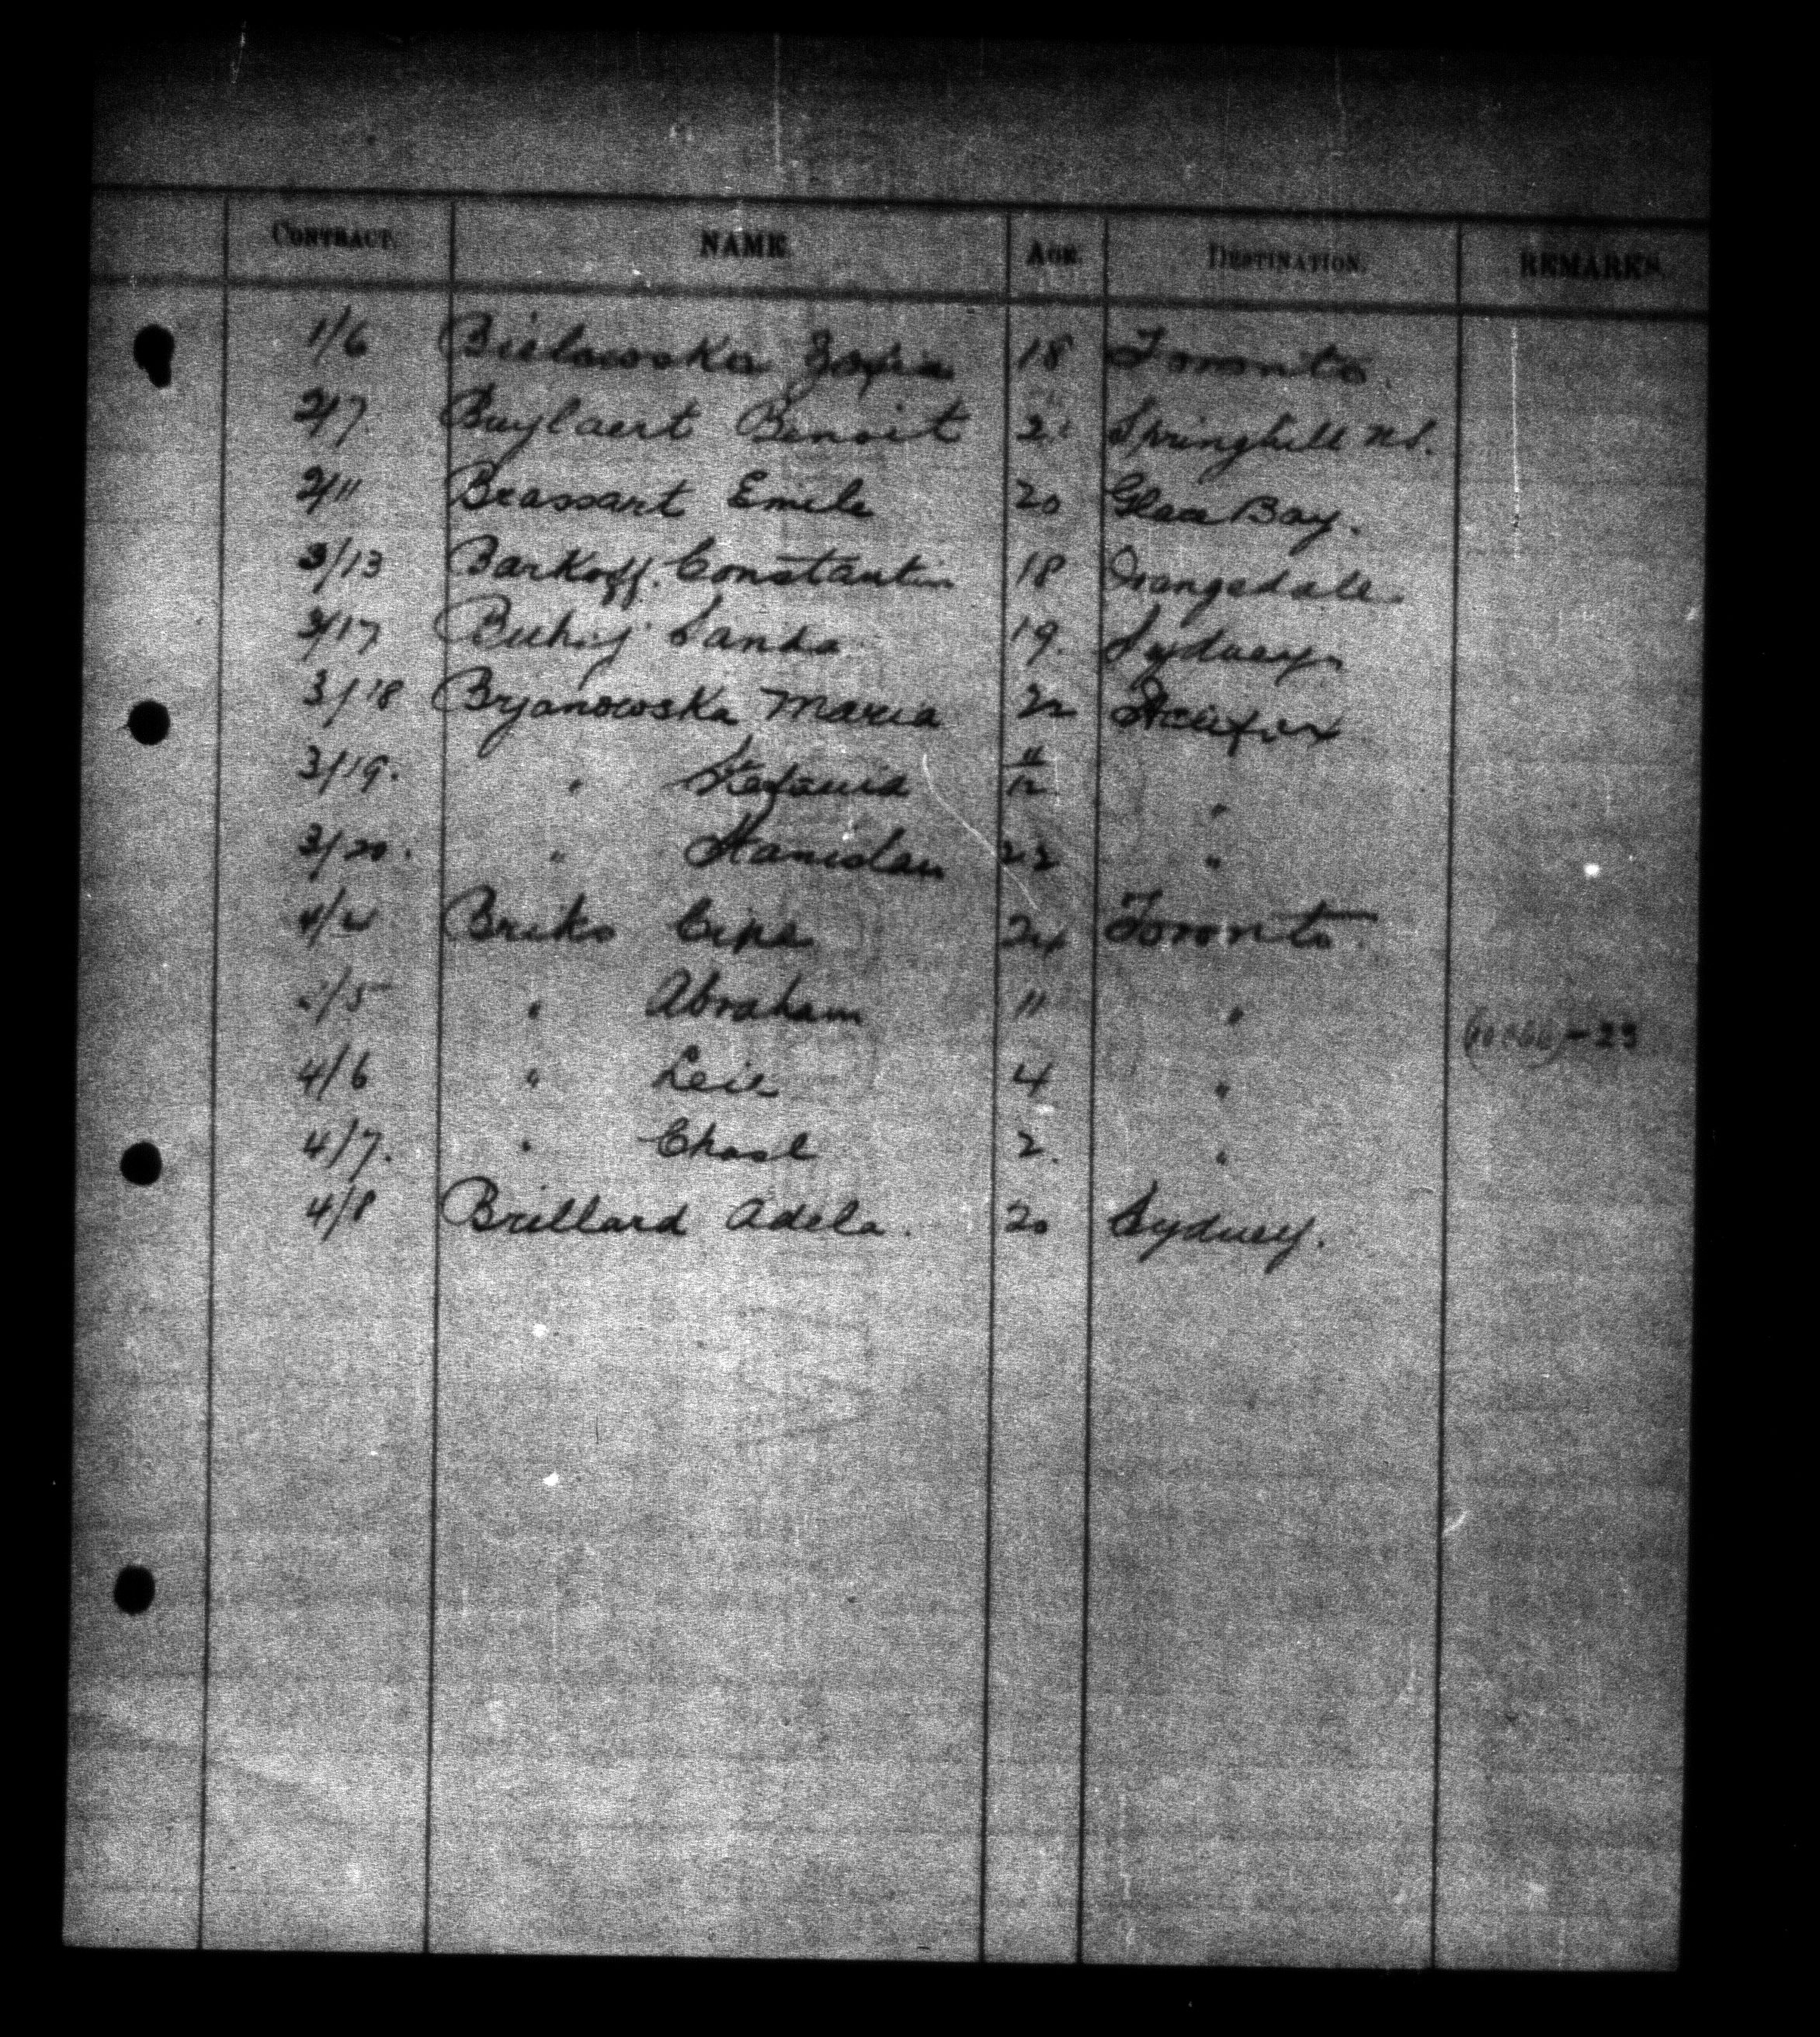 CONTRACT. NAME. AGE. DESTINATION. REMARKS.
1/6 Bielawska Zofia 18 Toronto.
2/7. Buylaert Benoit Springhill N.S.
2/11 Brassart Emile 20 Glace Bay.
3/13 Barkoff. Constantin 18 Orangedale
3/17 Sanka 19. Sydney
3/18 Bryanowska Maria 22 Halifax
3/19. " Stefania 11/12 "
3/20. " Stanislau 22 "
4/4 Briks Cipa 24 Toronto.
/5 " Abraham 11 " -23
4/6 " Leie 4 "
4/7. " Chasl 2. "
4/8 Brillard Adela. 20 Sydney.